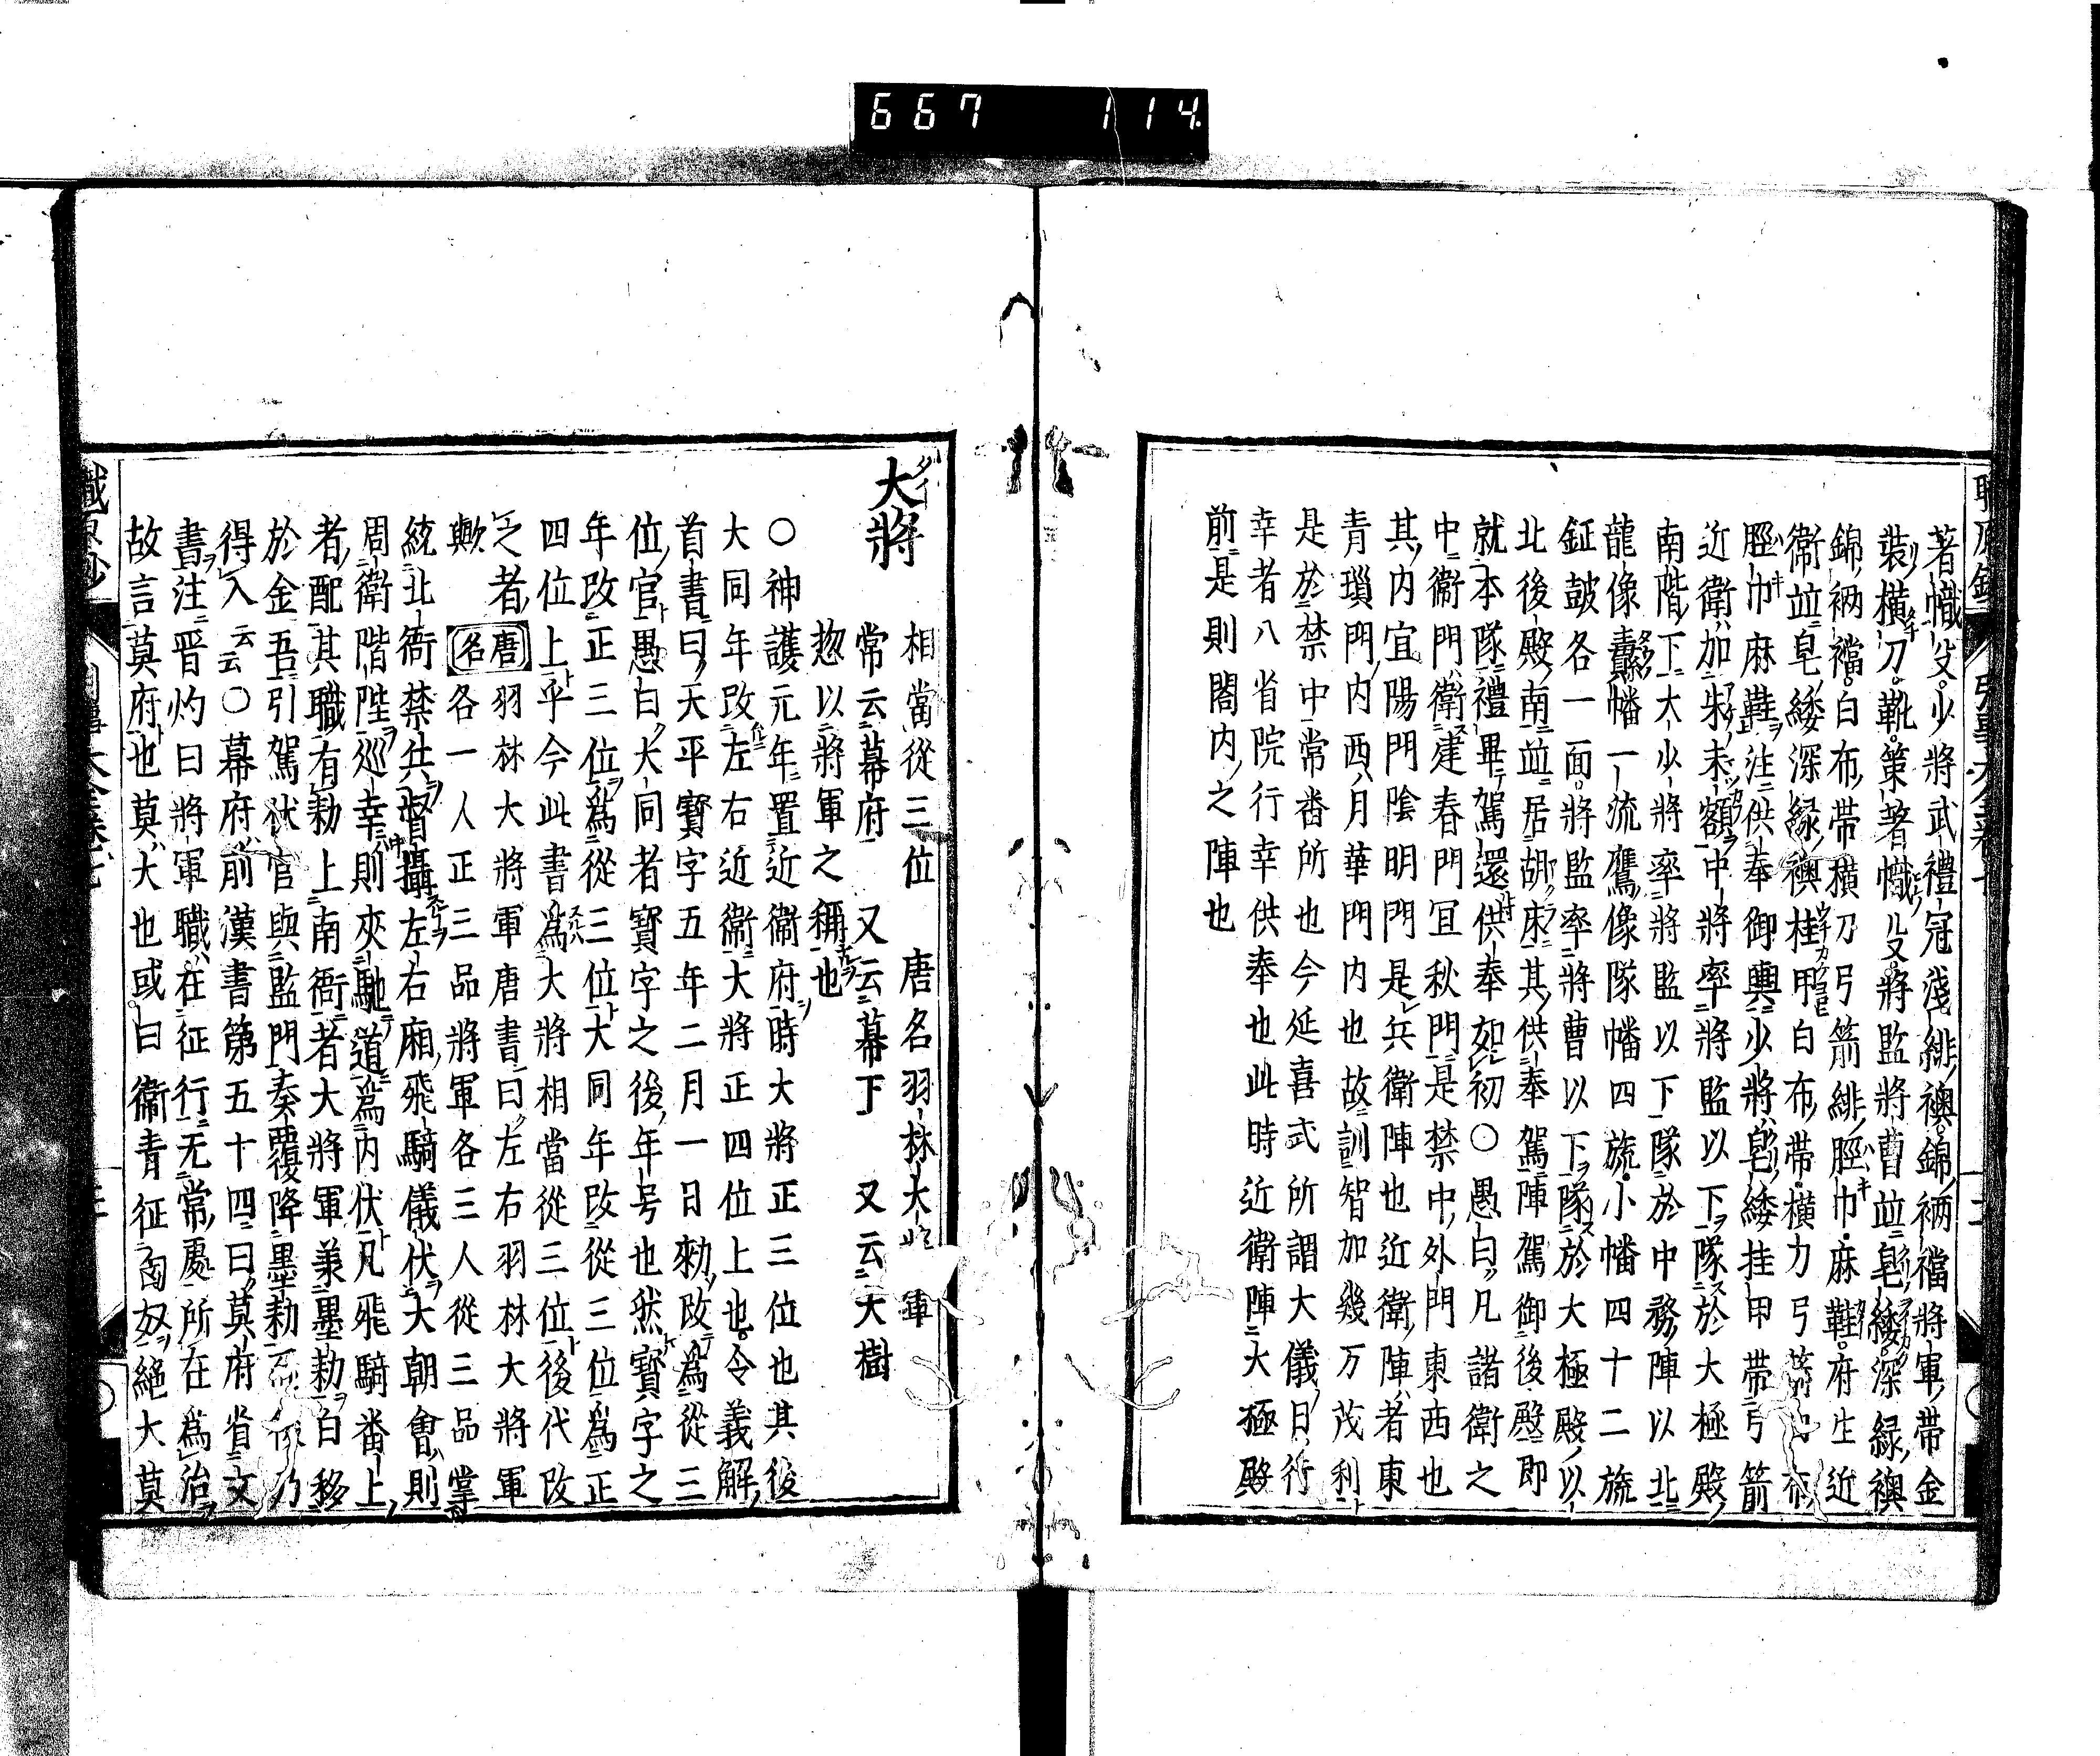 667 114
著幟殳少將武禮冠淺緋襖錦裲襠將軍帶金
裝橫刀靴策著幟殳將監將曹並皂緌深緑襖
錦裲襠白布帶橫刀弓箭緋脛巾麻鞋府生近
衛並皂緌深緑襖桂甲白布帶橫刀弓箭
脛巾麻鞋注供奉御輿少將皂緌挂甲帶弓箭
近衛加朱末額中將率將監以下隊於大極殿
南階下大少將率將監以下隊於中務陣以北
龍像纛幡一流鷹像隊幡四旒小幡四十二旒
鉦鼓各一面將監率將曹以下隊於大極殿以
北後殿南並居胡床其供奉駕陣駕御後殿即
就本隊禮畢駕還供奉如初○愚白凡諸衛之
中衛門衛建春門冝秋門是禁中外門東西也
其內宜陽門陰明門是兵衛陣也近衛陣者東
青瑣門內西月華門內也故訓智加幾万茂利
是於禁中常畨所也今延喜式所謂大儀日行
幸者八省院行幸供奉也此時近衛陣大極殿
前是則閤内之陣也
大將
相當從三位 唐名羽林大將軍
常云幕府 又云幕下 又云大樹
惣以將軍之稱也
○神護元年置近衛府時大將正三位也其後
大同年改左右近衛大將正四位上也令義解
首書曰天平寶字五年二月一日勑改為從三
位官愚白大同者寶字之後年号也然寶字之
年改正三位為從三位大同年改從三位為正
四位上乎今此書為大將相當從三位後代改
之者唐羽林大將軍唐書曰左右羽林大將軍
歟 唐名 各一人正三品將軍各三人從三品掌
統北衙禁兵督攝左右廂飛騎儀仗大朝會則
周衛階陛巡幸則夾馳道為内仗凡飛騎畨上
者配其職有勑上南衙者大將軍羕墨勑白移
於金吾引駕仗官與監門奏覆降墨勑乃
得入云云○幕府前漢書第五十四曰莫府省文
書注晋灼曰將軍職在征行无常處所在為治
故言莫府也莫大也或曰衛青征匈奴絶大莫